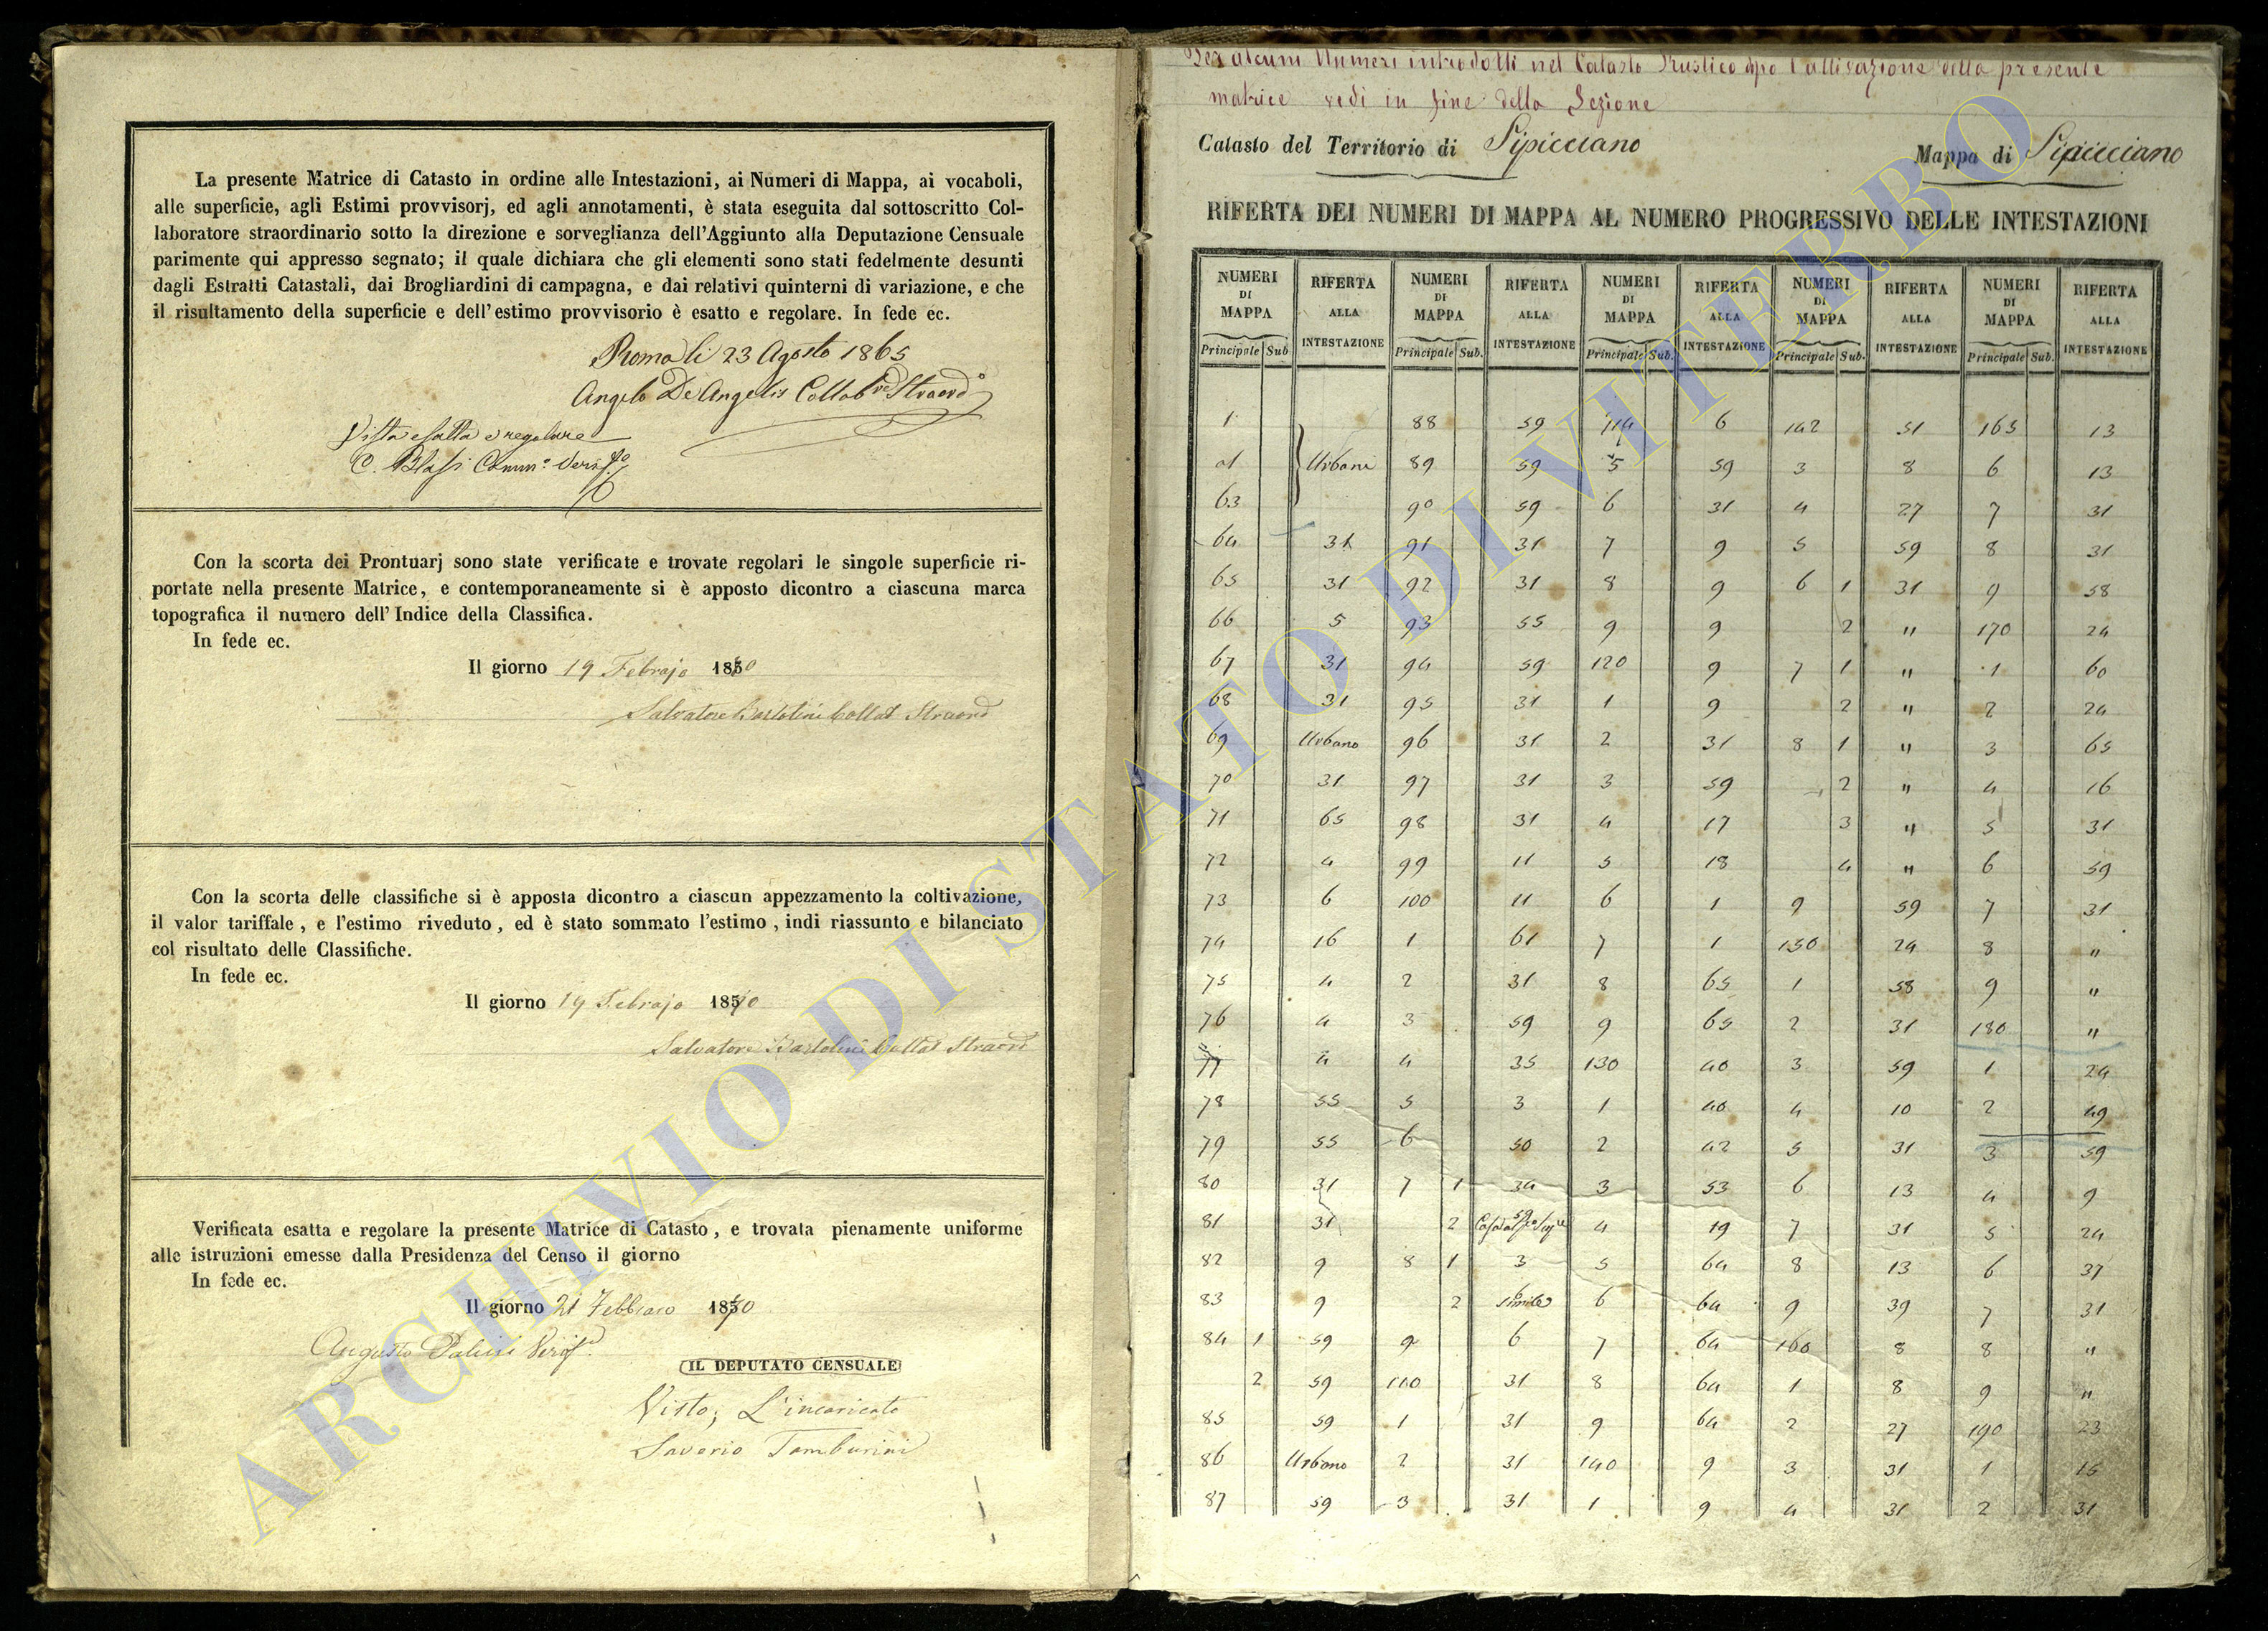 La presente Matrice di Catasto in ordine alle Intestazioni, ai Numeri di Mappa, ai vocaboli,
alle superficie, agli Estimi provvisorj, ed agli annotamenti, è stata eseguita dal sottoscritto Col-
laboratore straordinario sotto la direzione e sorveglianza dell'Aggiunto alla Deputazione Censuale
parimente qui appresso segnato; il quale dichiara che gli elementi sono stati fedelmente desunti
dagli Estratti Catastali, dai Brogliardini di campagna, e dai relativi quinterni di variazione, e che
il risultamento della superficie e dell'estimo provvisorio è esatto e regolare. In fede ec.
Roma li 23 Agosto 1865
Angelo De Angelis Collab.re Straord.o
Vista esatta e regolare
Con la scorta dei Prontuarj sono state verificate e trovate regolari le singole superficie ri-
portate nella presente Matrice, e contemporaneamente si è apposto dicontro a ciascuna marca
topografica il numero dell'Indice della Classifica.
In fede ec.
Il giorno 19 Febrajo 1870
Salvatore Bartolini Collab Straord
Con la scorta delle classifiche si è apposta dicontro a ciascun appezzamento la coltivazione,
il valor tariffale, e l'estimo riveduto, ed è stato sommato l'estimo, indi riassunto e bilanciato
col risultato delle Classifiche.
In fede ec.
Il giorno 19 Febrajo 1870
Salvatore Bartolini Collab Straord
Verificata esatta e regolare la presente Matrice di Catasto, e trovata pienamente uniforme
alle istruzioni emesse dalla Presidenza del Censo il giorno
In fede ec.
Il giorno 21 Febbraro 1870
Augusto
IL DEPUTATO CENSUALE
Visto; L'incaricato
Saverio Tamburini
Per alcuni Numeri introdotti nel Catasto Rustico dopo l'attivazione della presente
matrice vedi in fine della Sezione
Catasto del Territorio di Sipicciano Mappa di Sipicciano
RIFERTA DEI NUMERI DI MAPPA AL NUMERO PROGRESSIVO DELLE INTESTAZIONI
NUMERI RIFERTA NUMERI RIFERTA NUMERI RIFERTA NUMERI RIFERTA NUMERI RIFERTA
DI ALLA DI ALLA DI ALLA DI ALLA DI ALLA
MAPPA INTESTAZIONE MAPPA INTESTAZIONE MAPPA INTESTAZIONE MAPPA INTESTAZIONE MAPPA INTESTAZIONE
Principale Sub Principale Sub. Principale Sub. Principale Sub. Principale Sub.
1 88 59 114 6 142 51 165 13
al Urbani 89 59 5 59 3 8 6 13
63 90 59 6 31 4 27 7 31
64 31 91 31 7 9 5 59 8 31
65 31 92 31 8 9 6 1 31 9 58
66 5 93 55 9 9 2 " 170 24
67 31 94 59 120 9 7 1 " 1 60
68 31 95 31 1 9 2 " 2 24
69 Urbano 96 31 2 31 8 1 " 3 65
70 31 97 31 3 59 2 " 4 16
71 65 98 31 4 17 3 " 5 31
72 4 99 11 5 18 4 " 6 59
73 6 100 11 6 1 9 59 7 31
74 16 1 61 7 1 150 24 8 "
75 4 2 31 8 65 1 58 9 "
76 4 3 59 9 65 2 31 180 "
77 4 4 35 130 40 3 59 1 24
78 55 5 3 1 40 4 10 2 49
79 55 6 50 2 42 5 31 3 59
80 31 7 1 34 3 53 6 13 4 9
81 31 2 59 4 19 7 31 5 24
82 9 8 1 3 5 64 8 13 6 37
83 9 2 6 simile 6 64 9 39 7 31
84 1 59 9 6 7 64 160 8 8 "
2 59 110 31 8 64 1 8 9 "
85 59 1 31 9 64 2 27 190 23
86 Urbano 2 31 140 9 3 31 1 15
87 59 3 31 1 9 4 31 2 31
ARCHIVIO DI STATO DI VITERBO